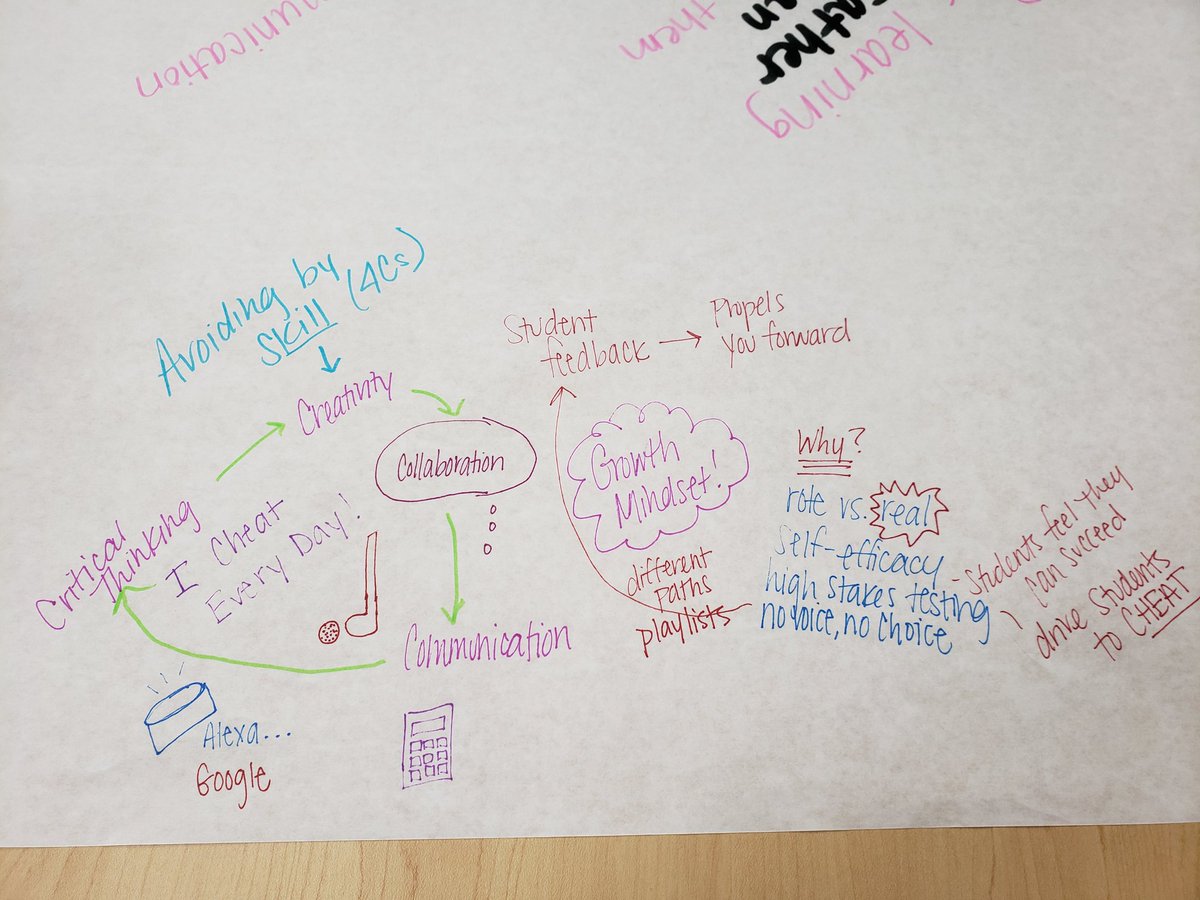 unication
them
ather
en
learning
Avoiding by
skill (4Cs)
Creativity
Collaboration
Critical
Thinking
I Cheat
Every Day!
Communication
Alexa...
Google
Student
feedback
Propels
you forward
Growth
Mindset!
different
paths
playlists
Why?
rote vs. real
self-efficacy
high stakes testing
no voice, no choice
- Students feel they
can succeed
drive students
to CHEAT